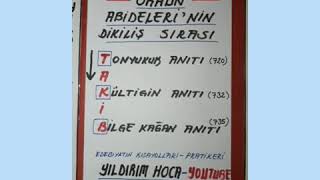 ORHUN
ABİDELERİ'NİN
DİKİLİŞ SIRASI
TONYUKUK ANITI (720)
A
KÜLTİGİN ANITI (732)
İ
BİLGE KAĞAN ANITI (735)
EDEBİYATIN KISAYOLLARI-PRATİKLERİ
YILDIRIM HOCA-YOUTUBE